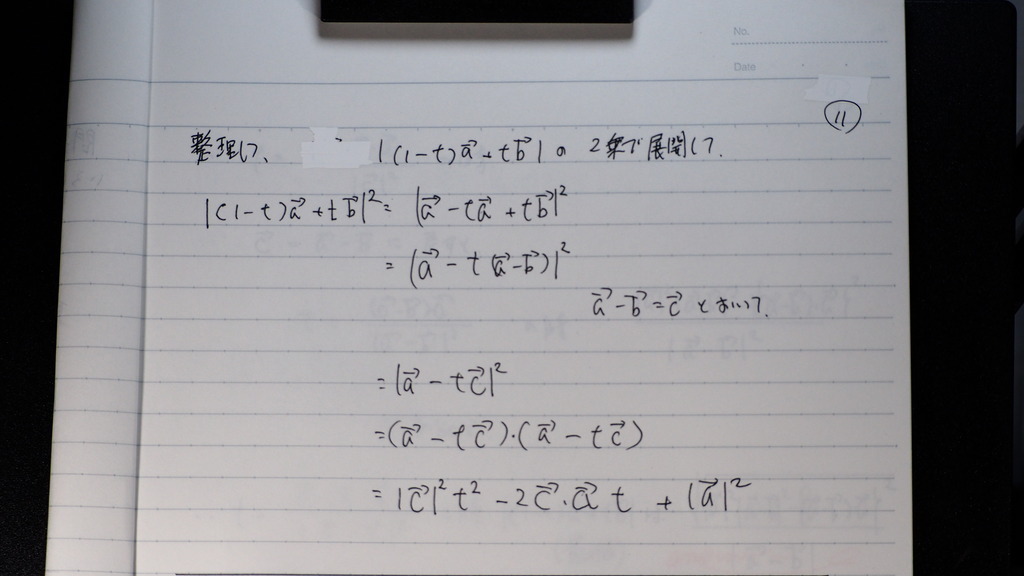 No.
Date
⑪
整理して、 |(1-t)a⃗+tb⃗| の 2乗で展開して.
|(1-t)a⃗+tb⃗|²= |a⃗-ta⃗+tb⃗|²
= |a⃗-t(a⃗-b⃗)|²
a⃗-b⃗=c⃗ とおいて.
=|a⃗-tc⃗|²
=(a⃗-tc⃗)・(a⃗-tc⃗)
=|c⃗|²t²-2c⃗・a⃗t+|a⃗|²